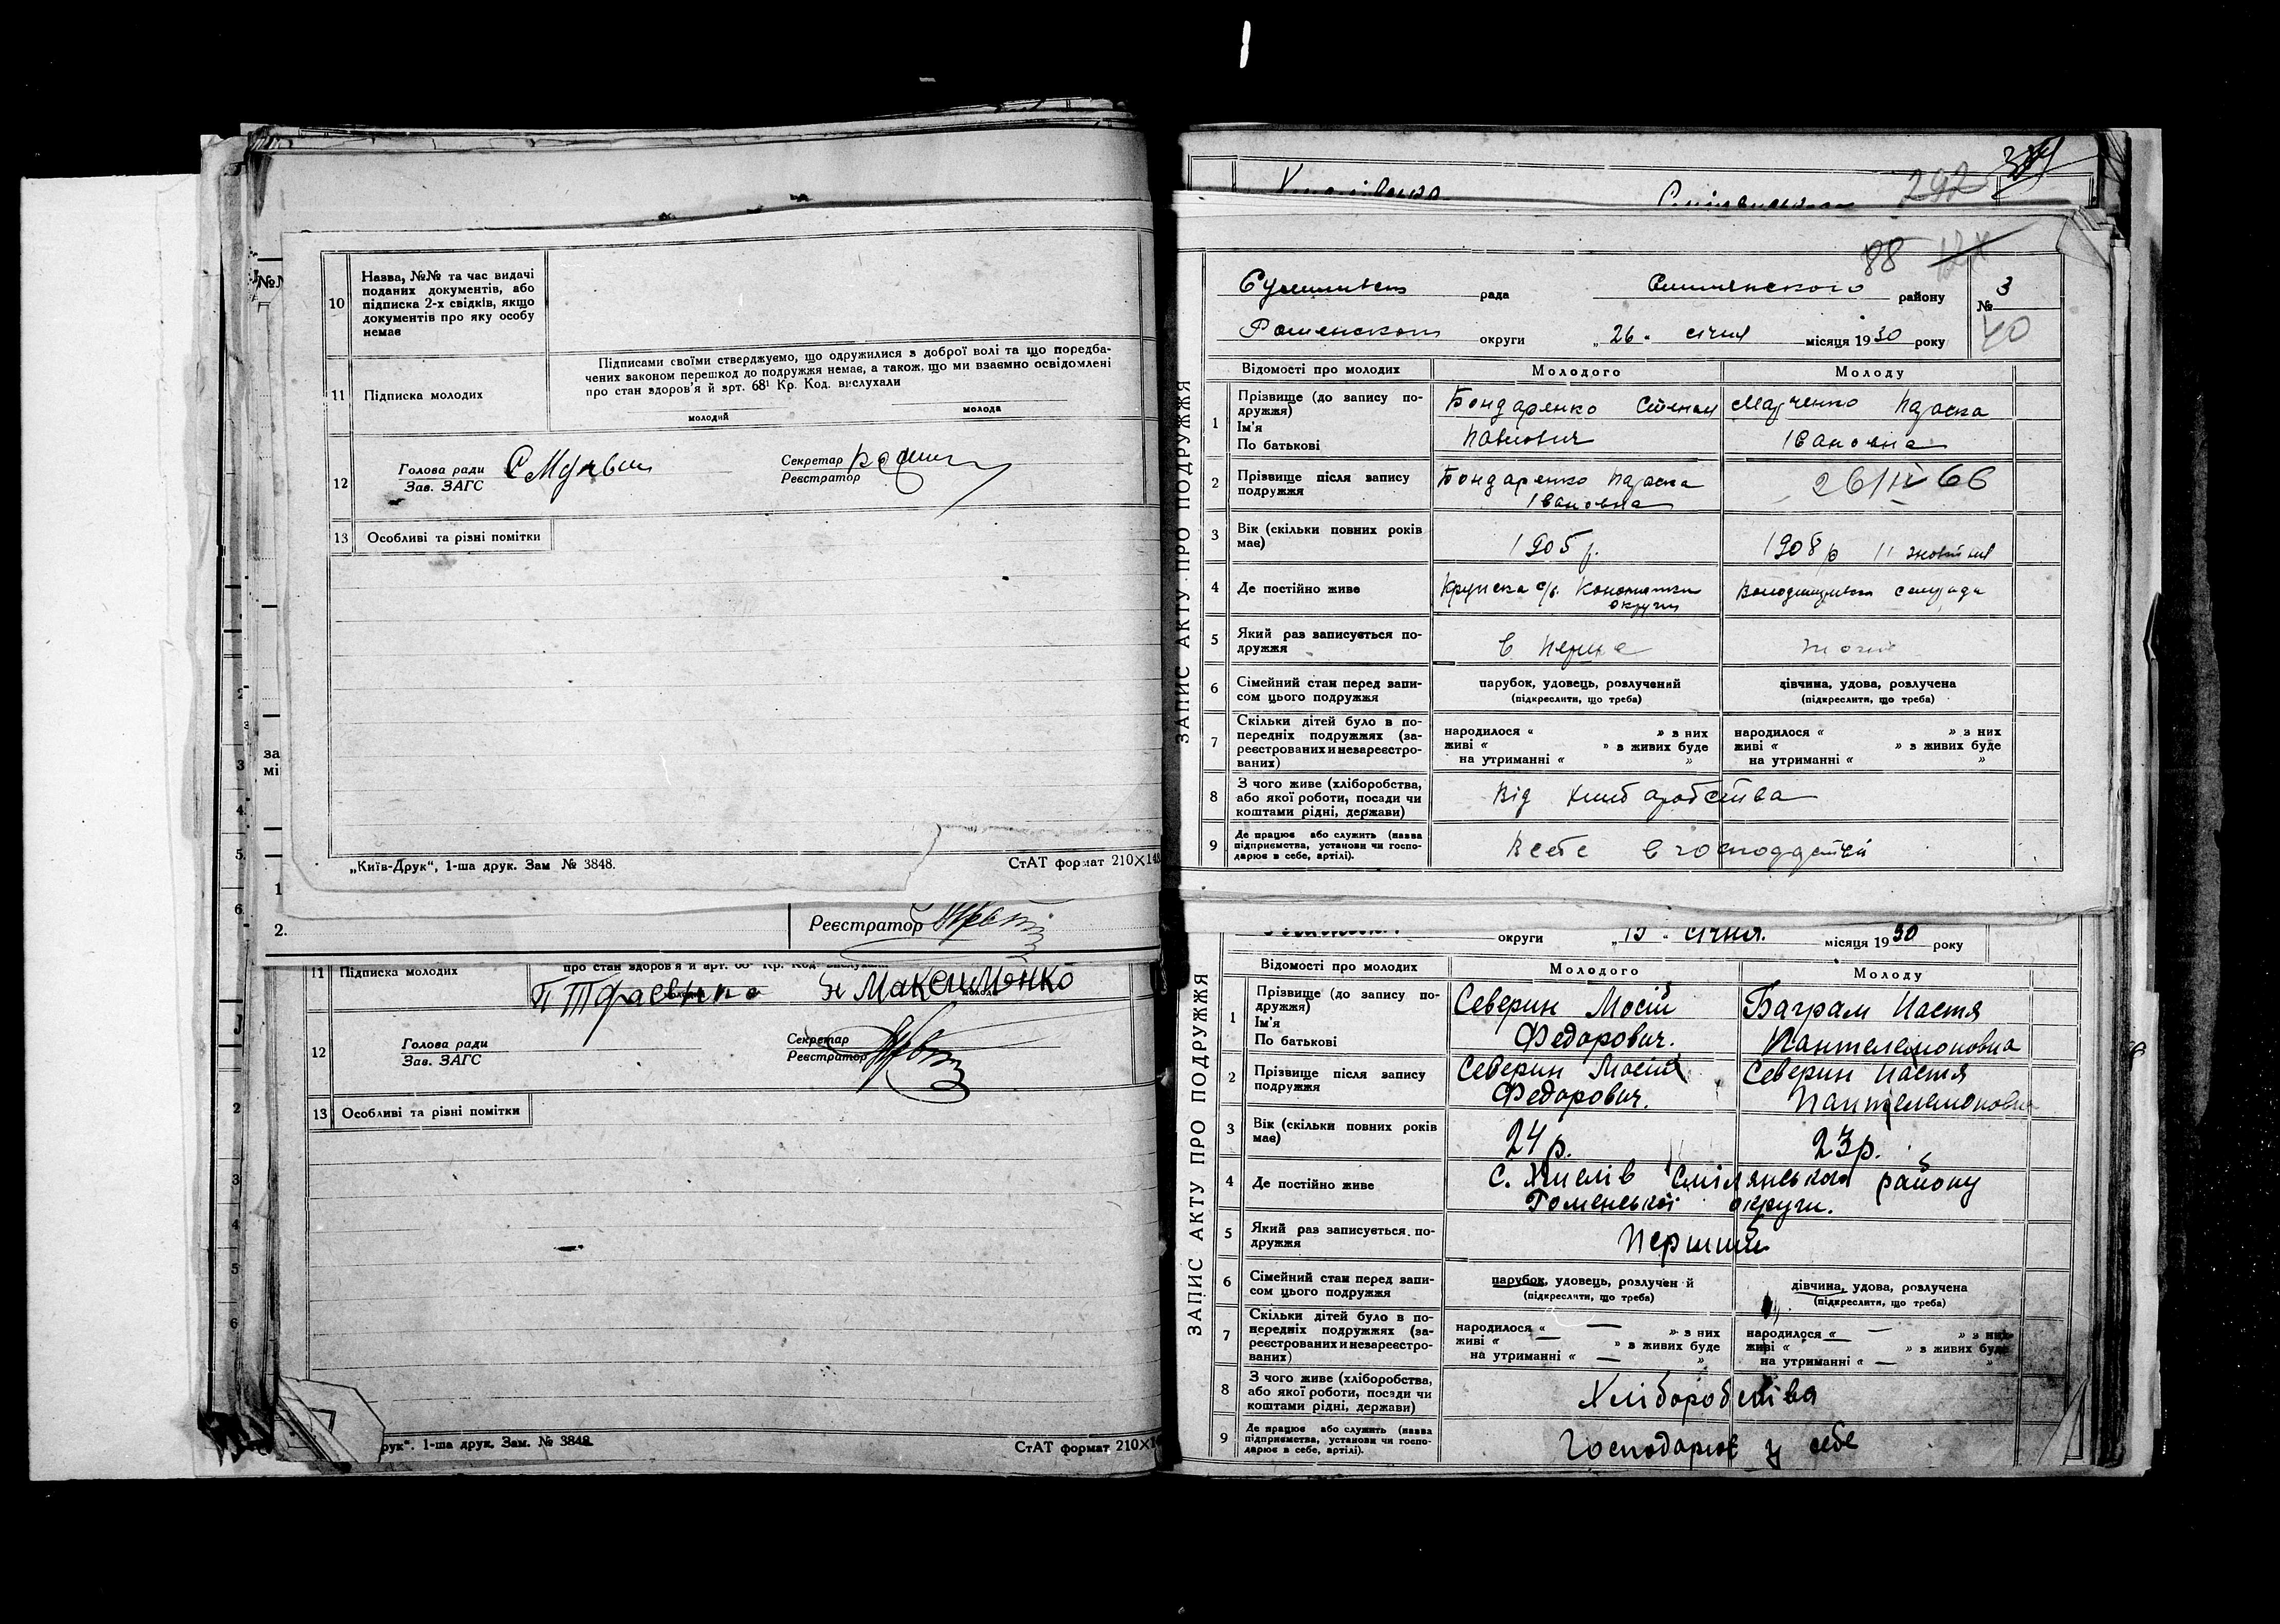 10
Назва, №№ та час видачі
поданих документів, або
підписка 2-х свідків, якщо
документів про яку особу
немає
11
Підписка молодих
Підписами своїми стверджуємо, що одружилися з доброї волі та що поредба-
чених законом перешкод до подружжя немає, а також, що ми взаємно освідомлені
про стан здоров'я й арт. 68¹ Кр. Код. вислухали
молодий
молода
12
Голова ради
Зав. ЗАГС
Секретар
Реєстратор
13
Особливі та різні помітки
„Київ-Друк“, 1-ша друк. Зам № 3848.
СтАТ формат 210×148
2.
Реєстратор
11
Підписка молодих
про стан здоров'я й арт. 68¹ Кр. Код. вислухали
Максименко
12
Голова ради
Зав. ЗАГС
Секретар
Реєстратор
13
Особливі та різні помітки
рук“. 1-ша друк. Зам. № 3848
СтАТ формат 210×1
292
88
рада
району
№ 3
40
округи
„ 26 “ січня місяця 1930 року
ЗАПИС АКТУ ПРО ПОДРУЖЖЯ
Відомості про молодих
Молодого
Молоду
1
Прізвище (до запису по-
дружжя)
Ім'я
По батькові
Бондаренко Степан
Павлович
Марченко Параска
Івановна
2
Прізвище після запису
подружжя
Бондаренко Параска
Івановна
26/IV 66
3
Вік (скільки повних років
має)
1905 р.
1908 р
4
Де постійно живе
округи
5
Який раз записується по-
дружжя
в перше
тоже
6
Сімейний стан перед запи-
сом цього подружжя
парубок, удовець, розлучений
(підкреслити, що треба)
дівчина, удова, розлучена
(підкреслити, що треба)
7
Скільки дітей було в по-
передніх подружжях (за-
реєстрованих и незареєстро-
ваних)
народилося « » з них
живі « » з живих буде
на утриманні « »
народилося « » з них
живі « » з живих буде
на утриманні « »
8
З чого живе (хліборобства,
або якої роботи, посади чи
коштами рідні, держави)
Від хлиборобства
9
Де працює або служить (назва
підприємства, установи чи госпо-
дарює в себе, артілі).
в себе в господарстві
округи
„ 15 “ січня. місяця 1930 року
ЗАПИС АКТУ ПРО ПОДРУЖЖЯ
Відомості про молодих
Молодого
Молоду
1
Прізвище (до запису по-
дружжя)
Ім'я
По батькові
Северин Мосій
Федорович.
Баграм Настя
Пантелемоновна
2
Прізвище після запису
подружжя
Северин Мосій
Федорович.
Северин Настя
Пантелемоновна
3
Вік (скільки повних років
має)
24 р.
23 р.
4
Де постійно живе
С. Хмелів Смілянського району
Роменської округи.
5
Який раз записується по-
дружжя
Перший
6
Сімейний стан перед запи-
сом цього подружжя
парубок, удовець, розлучен й
(підкреслити, що треба)
дівчина, удова, розлучена
(підкреслити, що треба)
7
Скільки дітей було в по-
передніх подружжях (за-
реєстрованих и незареєстро-
ваних)
народилося « — » з них
живі « — » з живих буде
на утриманні « — »
народилося « — » з них
живі « » з живих буде
на утриманні « — »
8
З чого живе (хліборобства,
або якої роботи, посади чи
коштами рідні, держави)
Хліборобства
9
Де працює або служить (назва
підприємства, установи чи госпо-
дарює в себе, артілі).
Господарює у себе